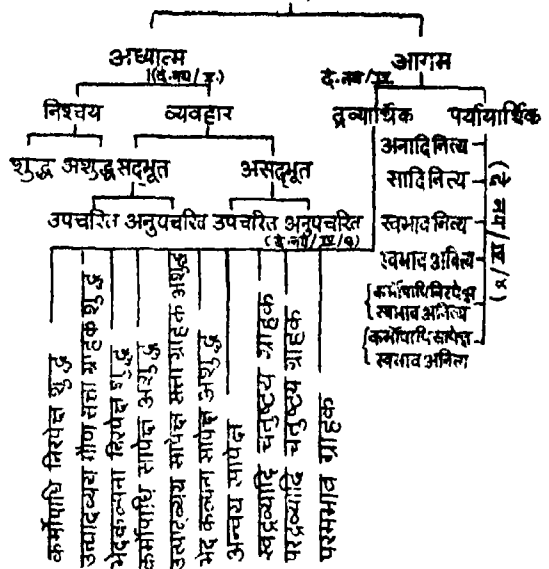 अध्यात्म
(दे. नय/V.)
आगम
दे. नय/IV
निश्चय
व्यवहार
द्रव्यार्थिक
पर्यायार्थिक
शुद्ध
अशुद्ध
सद्भूत
असद्भूत
उपचरित
अनुपचरित
उपचरित
अनुपचरित
(दे. नय/IV/२)
अनादि नित्य
सादि नित्य
स्वभाव नित्य
स्वभाव अनित्य
कर्मोपाधि निरपेक्ष
स्वभाव अनित्य
कर्मोपाधि सापेक्ष
स्वभाव अनित्य
(दे नय/IV/४)
कर्मोपाधि निरपेक्ष शुद्ध
उत्पादव्यय गौण सत्ता ग्राहक शुद्ध
भेदकल्पना निरपेक्ष शुद्ध
कर्मोपाधि सापेक्ष अशुद्ध
उत्पादव्यय सापेक्ष सत्ता ग्राहक अशुद्ध
भेद कल्पना सापेक्ष अशुद्ध
अन्वय सापेक्ष
स्वद्रव्यादि चतुष्टय ग्राहक
परद्रव्यादि चतुष्टय ग्राहक
परमभाव ग्राहक